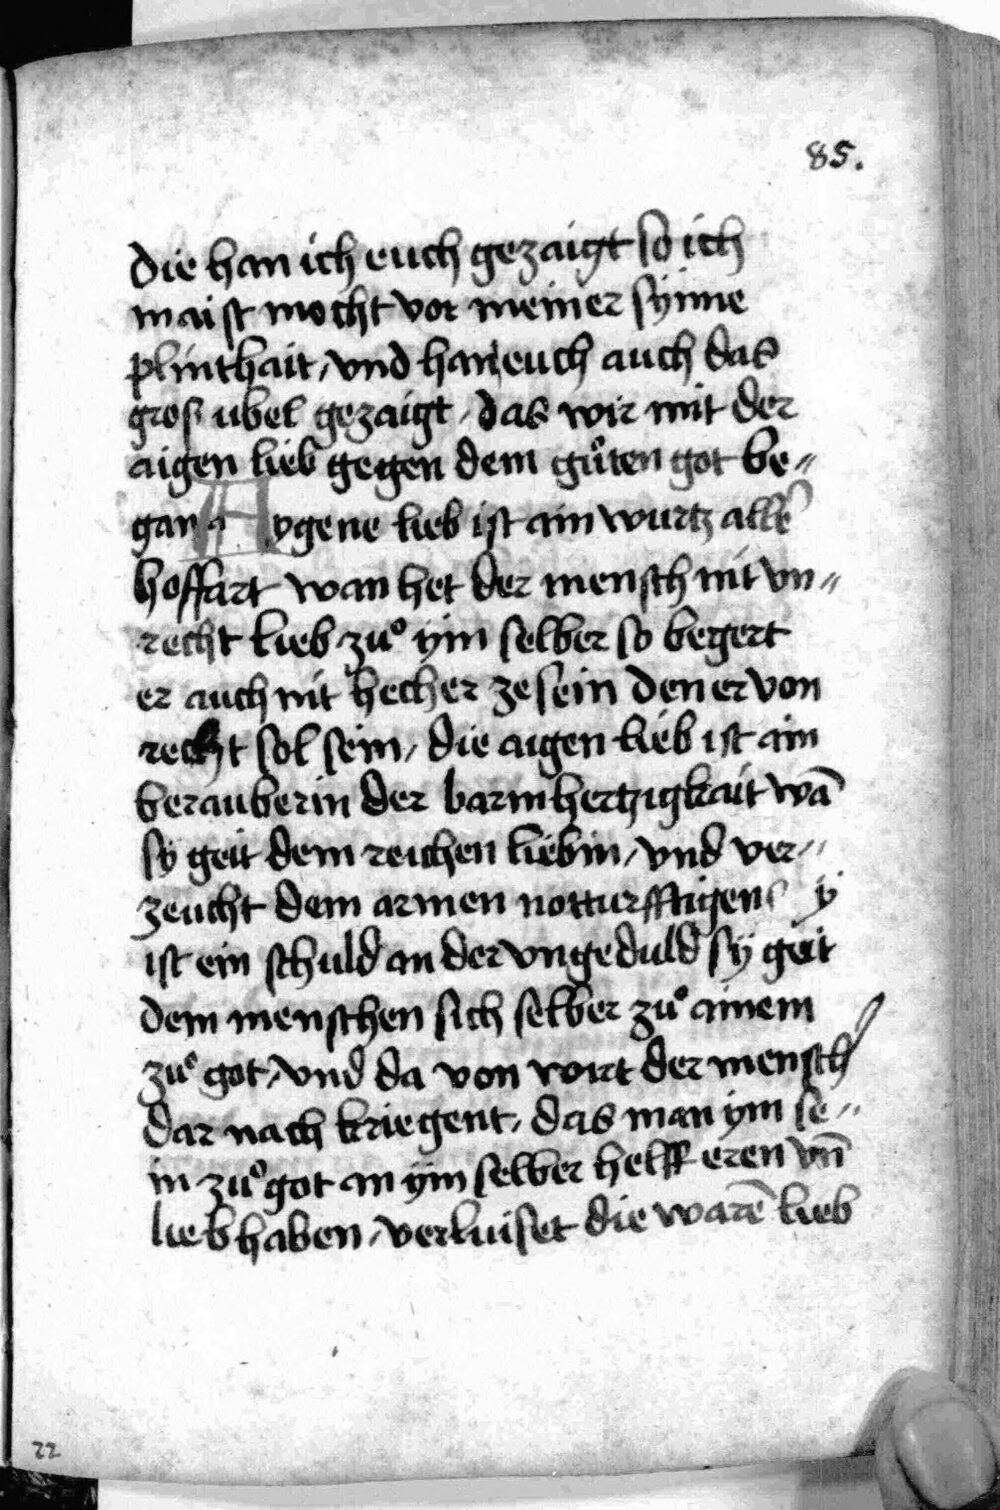 85.
die han ich euch gezaigt so ich
maist mocht vor meiner synne
plinthait / vnd han euch auch das
gros ubel gezaigt / das wir mit der
aigen lieb gegen dem gůten got be〃
gan Aygene lieb ist ain wurtz aller
hoffart wan het der mensch nit vn〃
recht lieb zů ym selber so begert
er auch nit hecher ze sein den er von
recht sol sein / die aigen lieb ist ain
berauberin der barmhertzigkait wā
sy geit dem reichen liebin / vnd ver〃
zeucht dem armen notturfftigen sy
ist ein schuld an der vngeduld sy geit
dem menschen sich selber zů ainem
zů got / vnd da von wirt der mensch
dar nach kriegent / das man ym se〃
in zů got an ym selber helff eren vn̄
lieb haben / verluiset die warē lieb
22